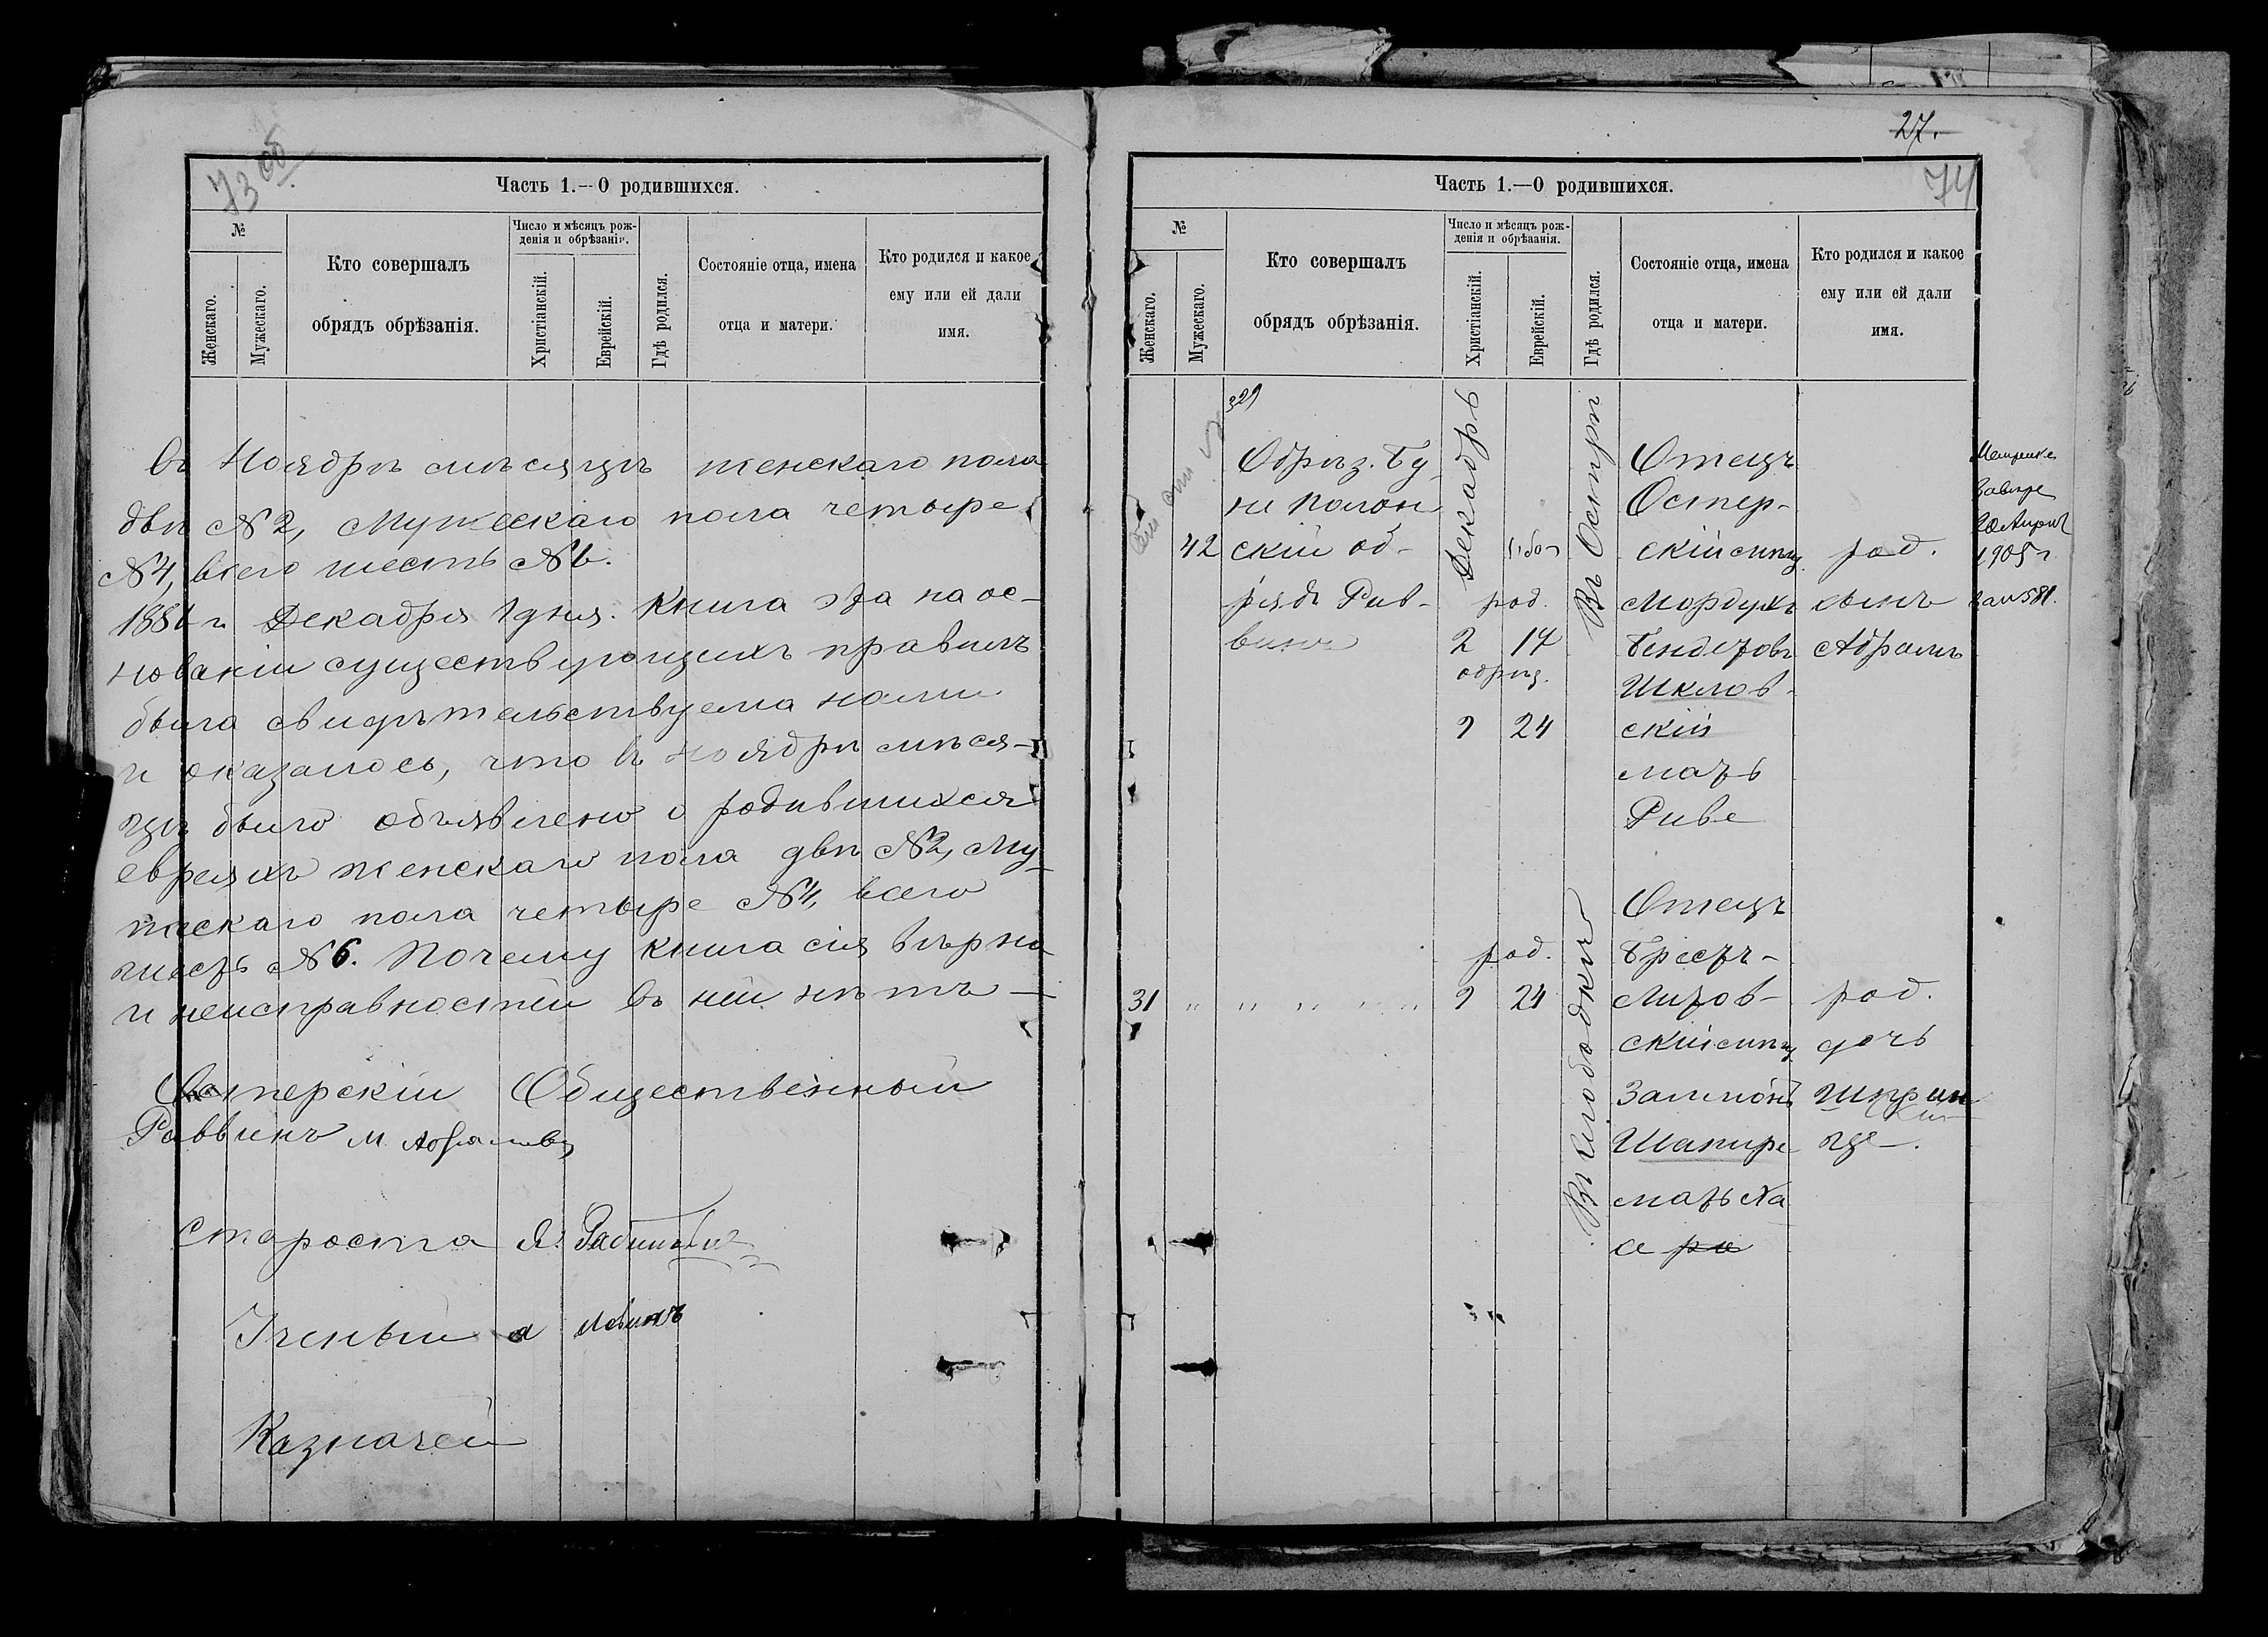 73 об.
Часть 1.—О родившихся.
№
Женскаго.
Мужескаго.
Кто совершалъ
обрядъ обрѣзанія.
Число и мѣсяцъ рож-
денія и обрѣзанія.
Христіанскій.
Еврейскій.
Гдѣ родился.
Состояніе отца, имена
отца и матери.
Кто родился и какое
ему или ей дали
имя.
въ Ноябрѣ мѣсяцѣ женскаго пола
двѣ №2, Мужескаго пола четыре
№4, всего шесть №6.
1886 г. Декабря 1 дня. Книга эта на ос-
нованіи существующихъ правилъ
была свидѣтельствуема нами
и оказалось, что въ ноябрѣ мѣся-
цѣ было объявлено о родившихся
евреяхъ женскаго пола двѣ №2, Му-
жескаго пола четыре №4, всего
шесть №6. Почему книга сія вѣрна
и неисправностей въ ней нѣтъ —
Остерскій Общественный
Раввинъ М
Староста Я. Рабинович
Ученый Левинъ
Казначей
27.
74
Часть 1.—О родившихся.
№
Женскаго.
Мужескаго.
Кто совершалъ
обрядъ обрѣзанія.
Число и мѣсяцъ рож-
денія и обрѣзанія.
Христіанскій.
Еврейскій.
Гдѣ родился.
Состояніе отца, имена
отца и матери.
Кто родился и какое
ему или ей дали
имя.
42
Обрѣз. Бу
не полон
скій об-
рядъ Рав-
винъ
Декабрь
כסלו
род.
2 17
обрѣз.
9 24
Въ Острѣ
Отецъ
Остер-
скій мѣщ
Мордухъ
Бендетовъ
Шклов-
скій
мать
Риве
род.
сынъ
Абрамъ
1905 г.
за №581.
31 " " " " " "
род.
9 24
Въ Слободкѣ
Отецъ
Брестъ-
Литов-
скій мѣщ
Залмонъ
Шапире
мать Ха
я
род.
дочь
Шприн
це.